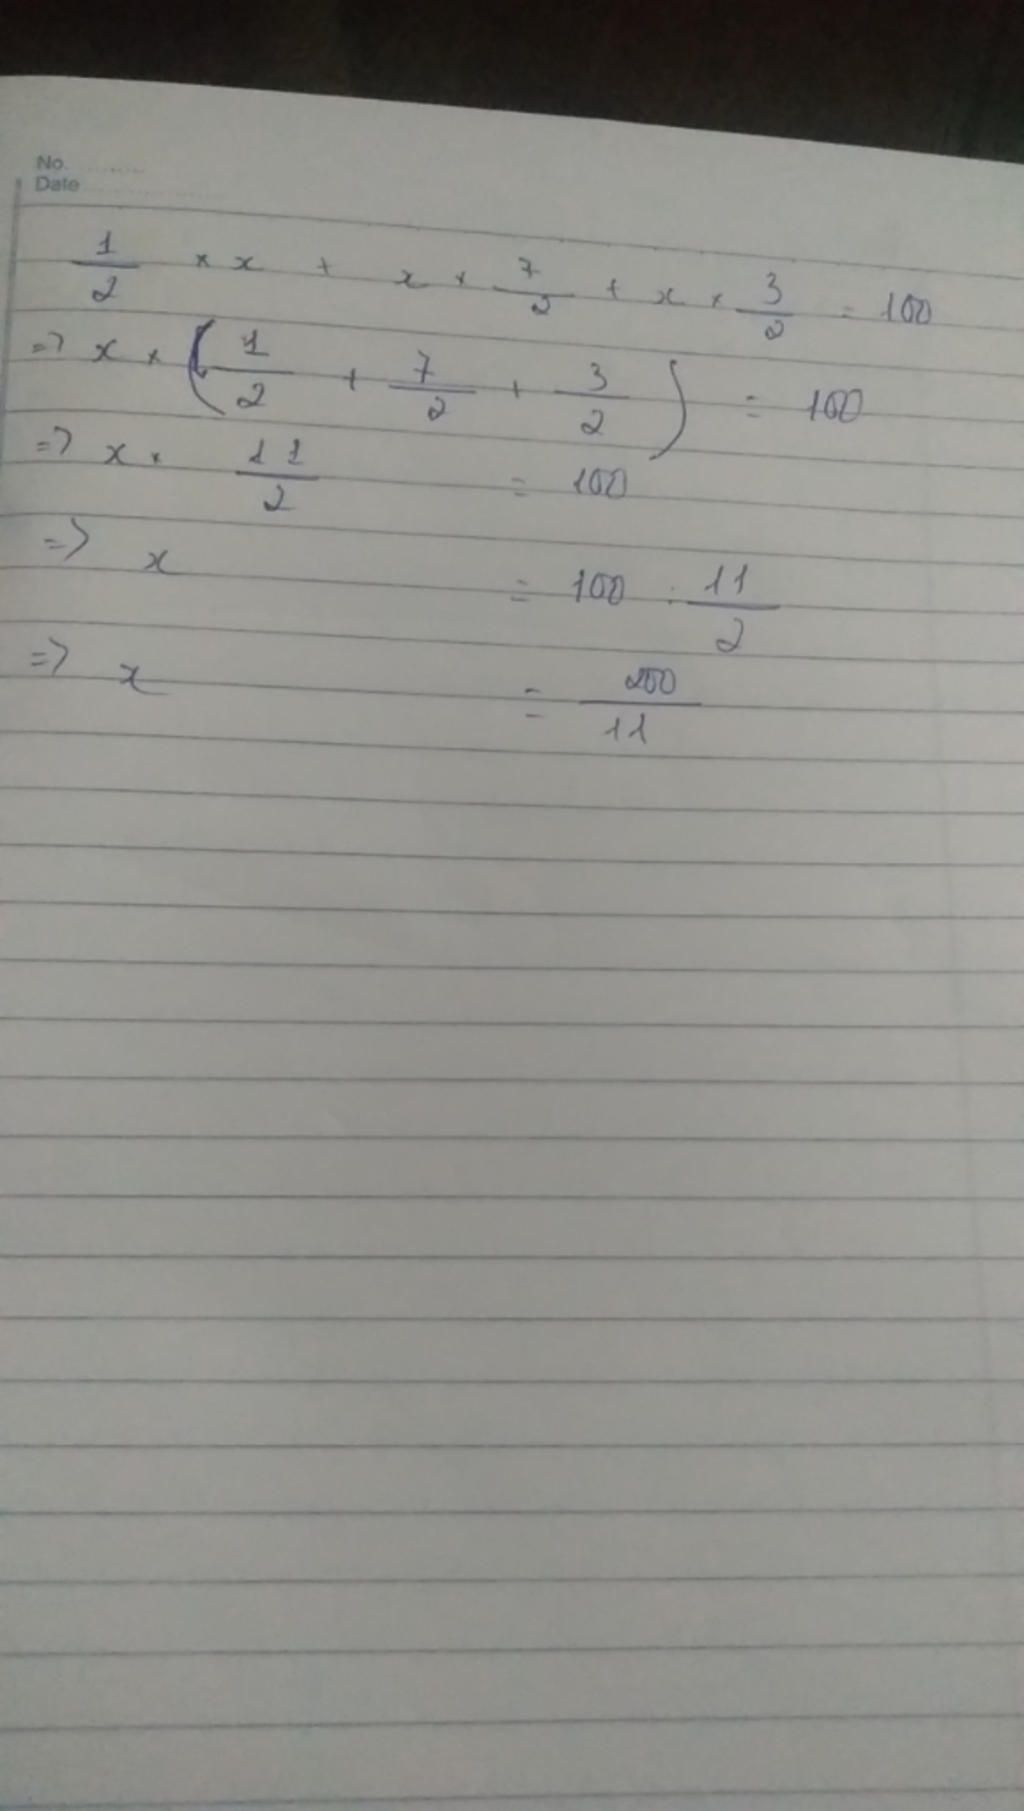 No.
Date
1/2 × x + x × 7/2 + x × 3/2 = 100
=> x × (1/2 + 7/2 + 3/2) = 100
=> x × 11/2 = 100
=> x = 100 : 11/2
=> x = 200/11